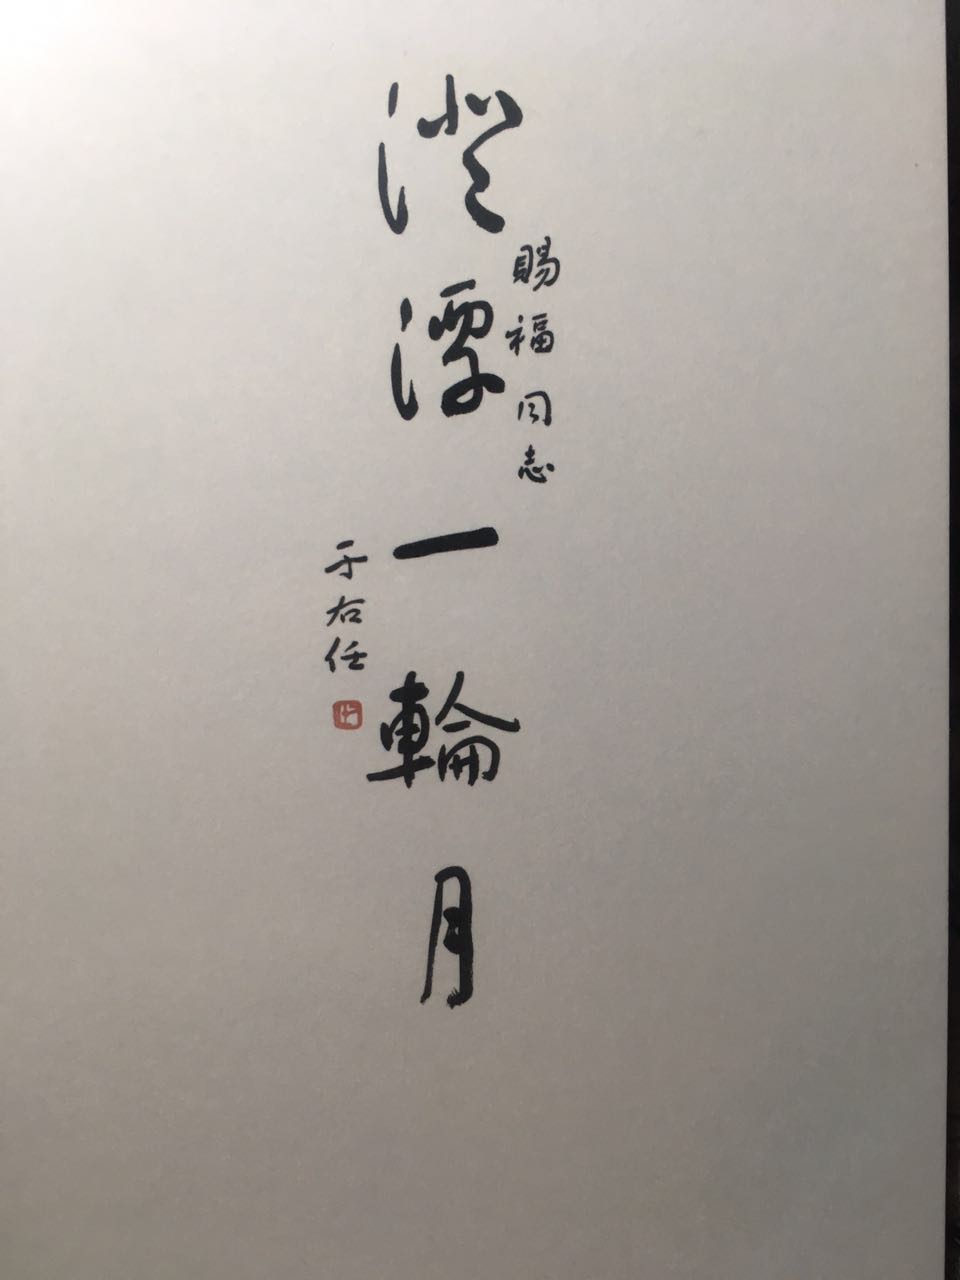 賜福同志
澄潭一輪月
于右任